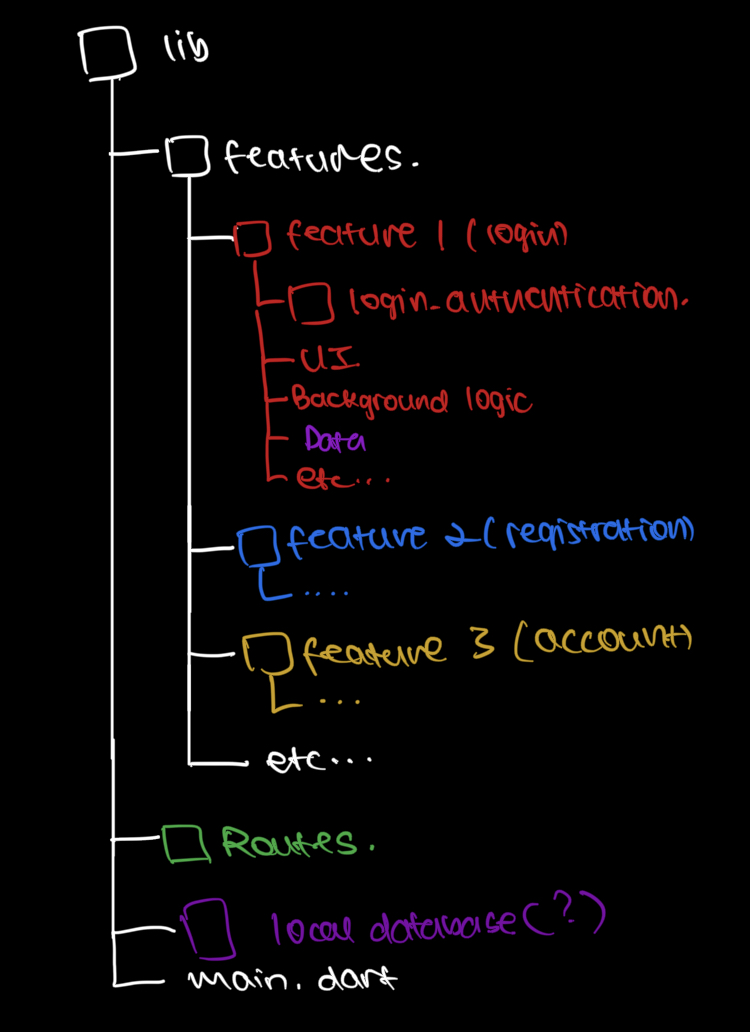 lib
features.
feature 1 (login)
login_autnentication.
UI
Background logic
Data
etc...
feature 2 (registration)
....
feature 3 (account)
...
etc...
Routes.
local database (?)
main. dart